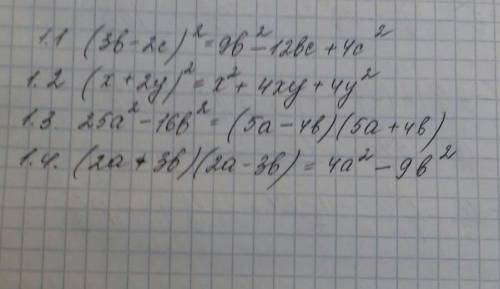 1.1 (3в-2с)²=9в²-12вс+4с²
1.2 (x+2y)²=x²+4xy+4y²
1.3. 25a²-16в²=(5a-4в)(5a+4в)
1.4. (2a+3в)(2a-3в)=4a²-9в²